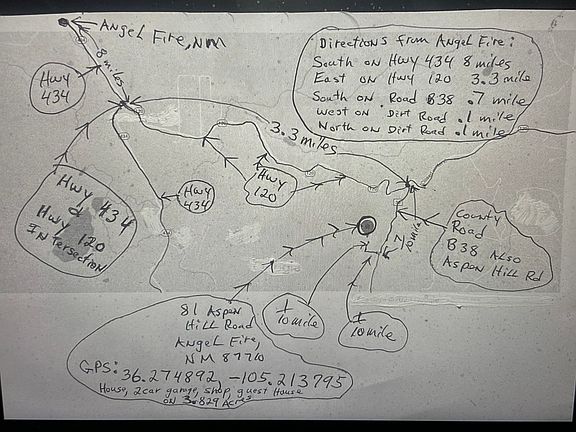 Angel Fire, NM
8 miles
Hwy
434
Directions from Angel Fire:
South on Hwy 434 8 miles
East on Hwy 120 3.3 mile
South on Road B38 .7 mile
West on Dirt Road .1 mile
North on Dirt Road .1 mile
3.3 miles
Hwy
120
Hwy
434
Hwy 434
&
Hwy 120
Intersection
County
Road
B38 Also
Aspen Hill Rd
7/10 mile
1/10 mile
1/10 mile
81 Aspen
Hill Road
Angel Fire,
NM 87710
GPS: 36.274892, -105.213795
House, 2 car garage, shop, guest House
on 3.829 Acres